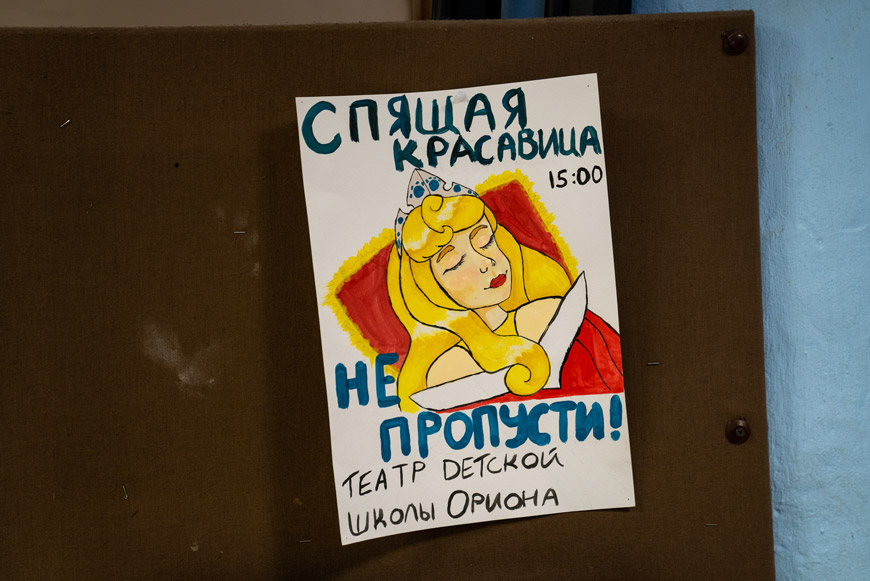 СПЯЩАЯ
КРАСАВИЦА
15:00
НЕ
ПРОПУСТИ!
ТЕАТР ДЕТСКОЙ
ШКОЛЫ ОРИОНА